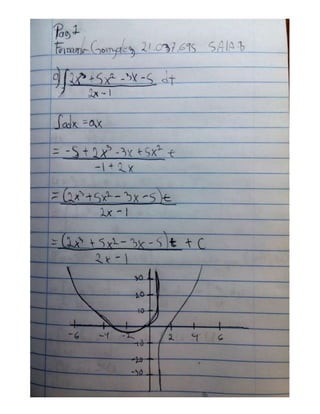 Pag 1
Fernando González 21.037.695 SAIA B
a) ∫ 2x³ + 5x² - 3x - 5 dt
2x - 1
∫adx = ax
= -5 + 2x³ - 3x + 5x² t
-1 + 2x
= (2x³ + 5x² - 3x - 5)t
2x - 1
= (2x³ + 5x² - 3x - 5)t + C
2x - 1
30
20
10
-6 -4 -2 2 4 6
-10
-20
-30